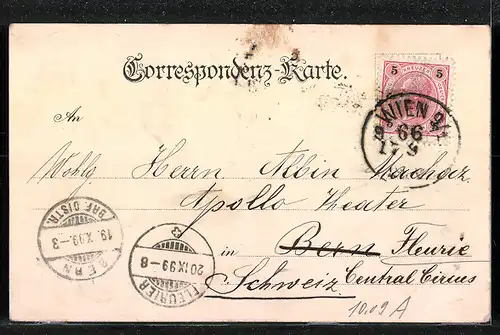 Correspondenz-Karte.
5 KREUZER 5
WIEN
66
An
Wohlg Herrn Albin
Apollo Theater
in Bern Fleurie
Schweiz Central Circus
BRF. DISTR.
19.X.99.-3
BERN
20.IX.99-8
FLEURIER
1009 A